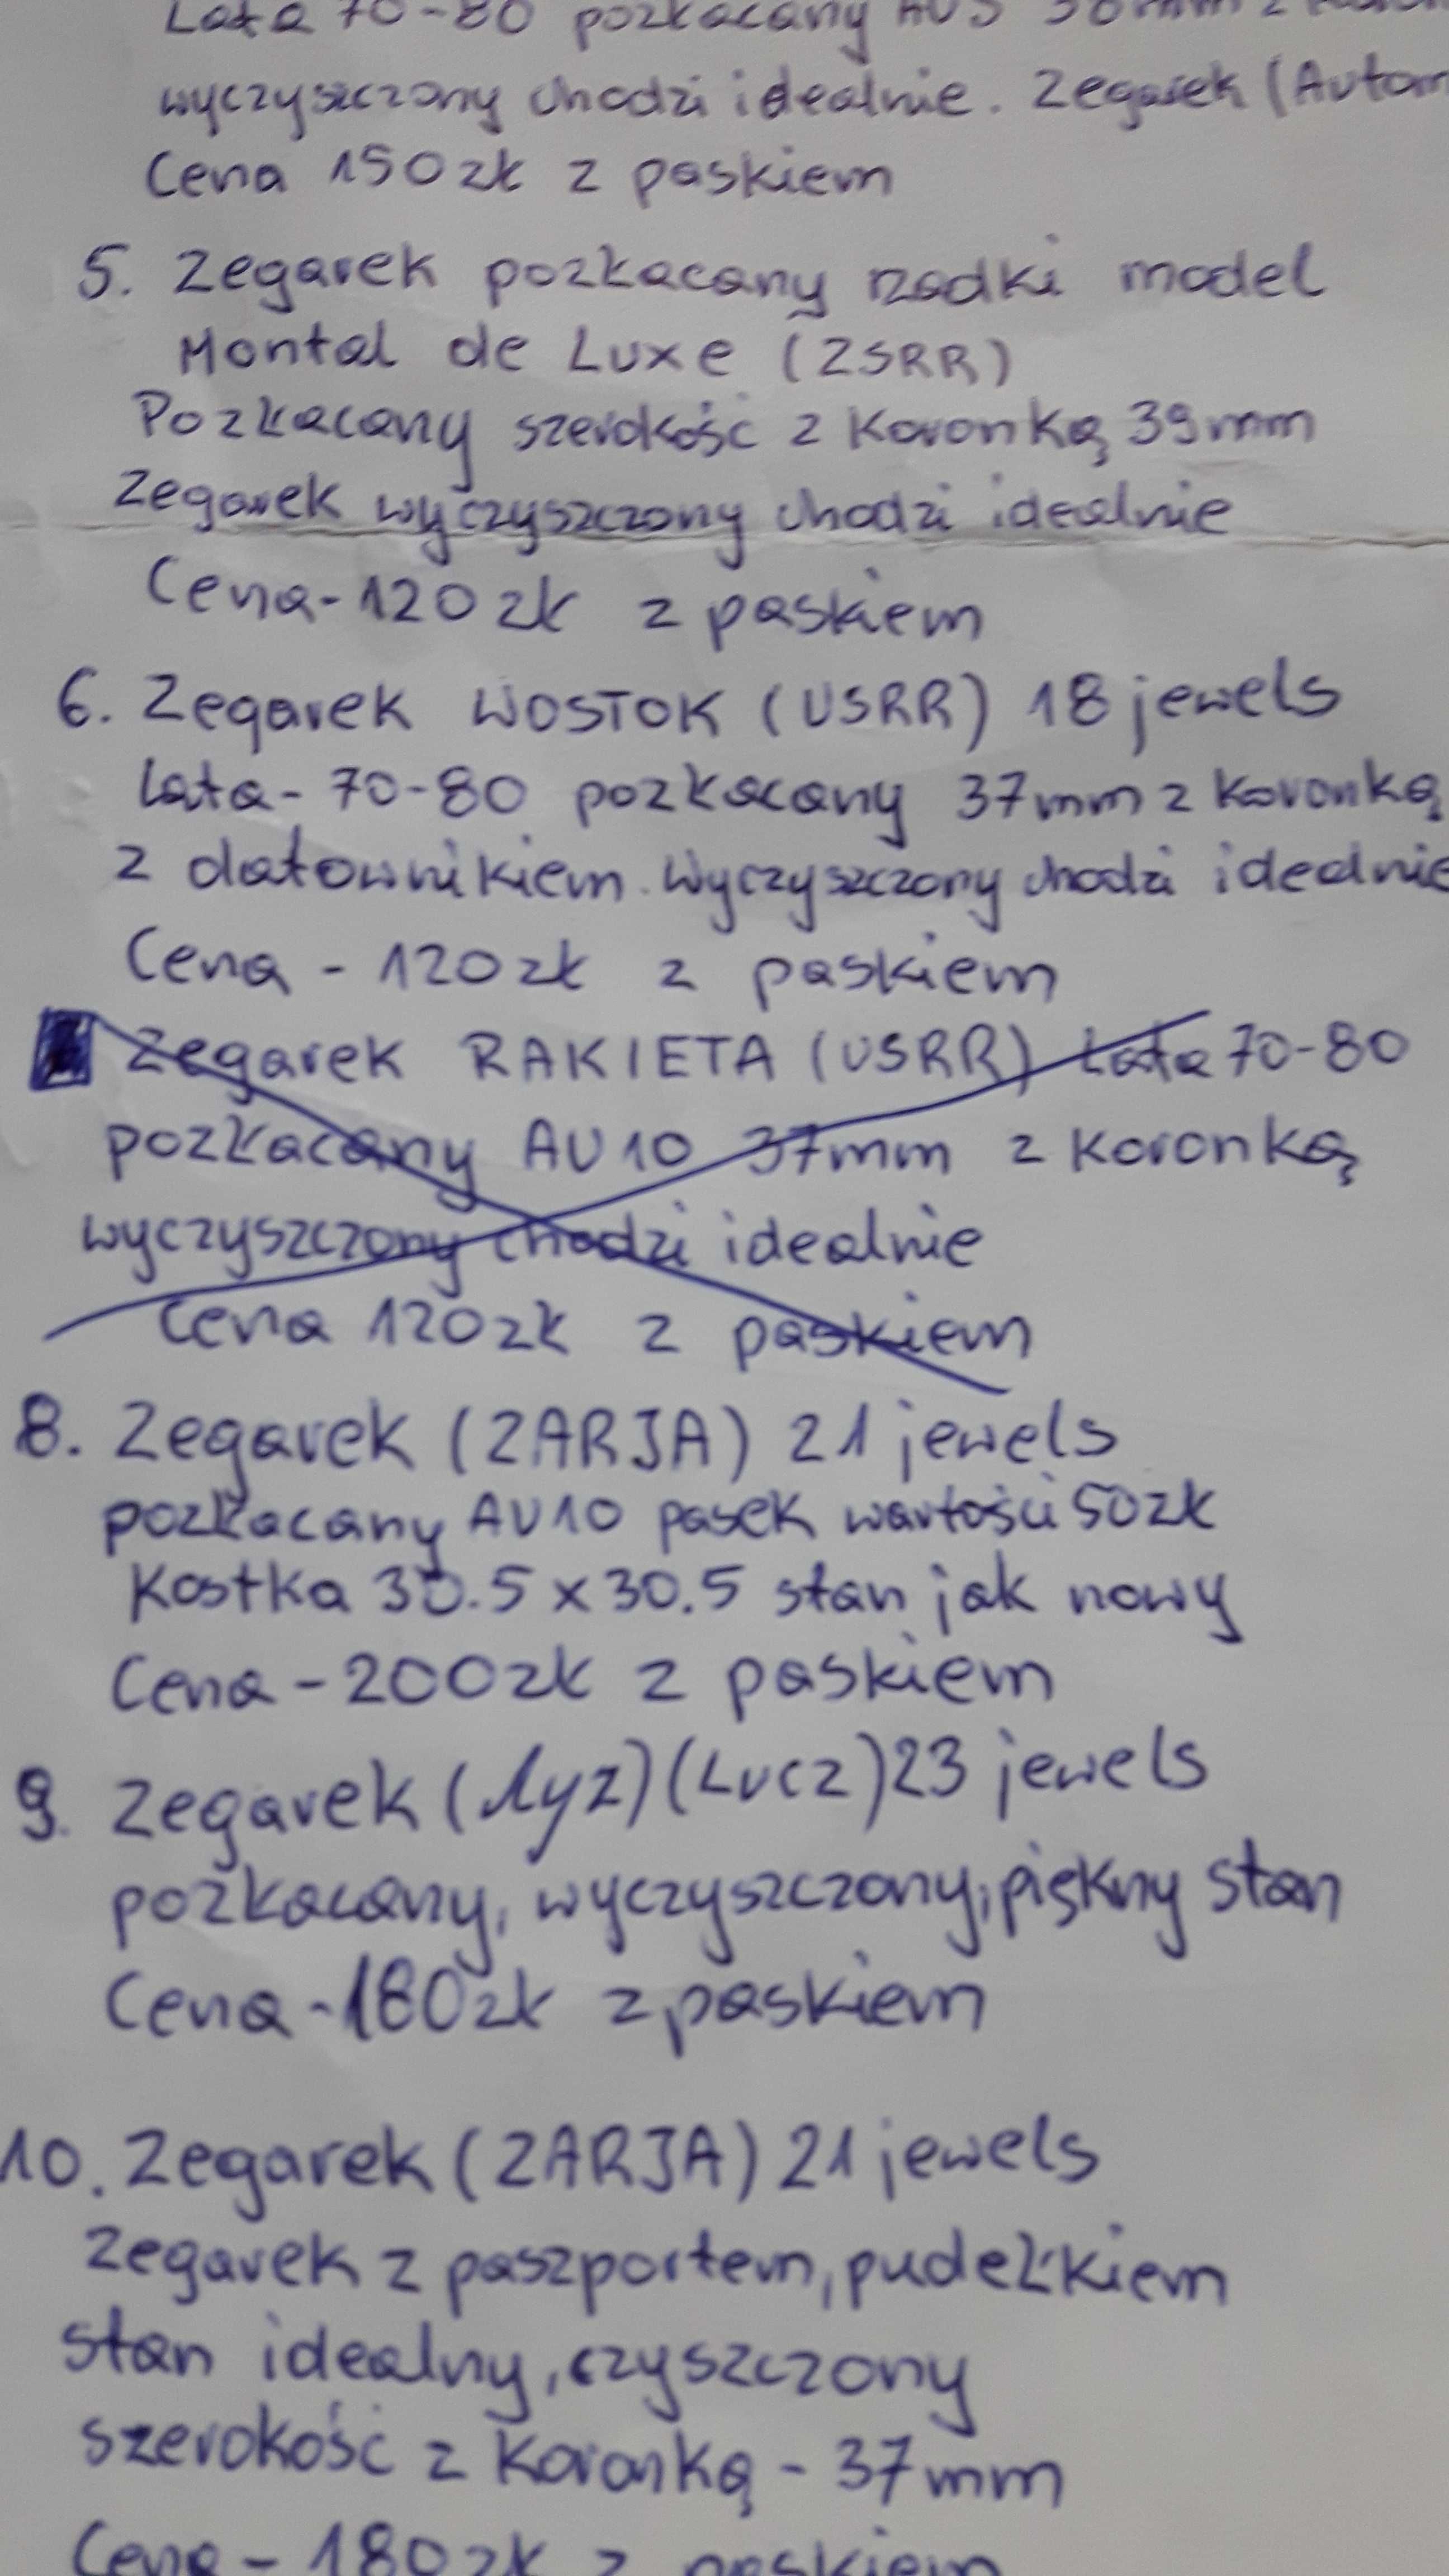 Lata 70-80 pozłacany AU5 38mm z
wyczyszczony chodzi idealnie. Zegarek (Autom
Cena 150zł z paskiem
5. Zegarek pozłacany rzadki model
Montal de Luxe (ZSRR)
Pozłacany szerokość z Koronką 39mm
Zegarek wyczyszczony chodzi idealnie
Cena-120zł z paskiem
6. Zegarek WOSTOK (USRR) 18 jewels
Lata-70-80 pozłacany 37mm z Koronką
z datownikiem. Wyczyszczony chodzi idealnie
Cena - 120zł z paskiem
Zegarek RAKIETA (USRR) Lata 70-80
pozłacany AU10 37mm z Koronką
wyczyszczony chodzi idealnie
Cena 120zł z paskiem
8. Zegarek (ZARJA) 21 jewels
pozłacany AU10 pasek wartości 50zł
Kostka 30.5 x 30.5 stan jak nowy
Cena - 200zł z paskiem
9. Zegarek (Луz) (Łucz) 23 jewels
pozłacany, wyczyszczony, piękny stan
Cena - 180zł z paskiem
10. Zegarek (ZARJA) 21 jewels
Zegarek z paszportem, pudełkiem
stan idealny, czyszczony
szerokość z Koronką - 37mm
Cena - 180zł z paskiem